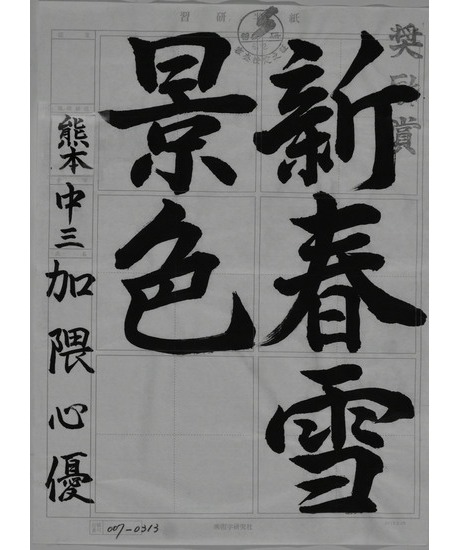 奨励賞
新春雪
景色
熊本 中三 加隈心優
習研 紙
007-0313